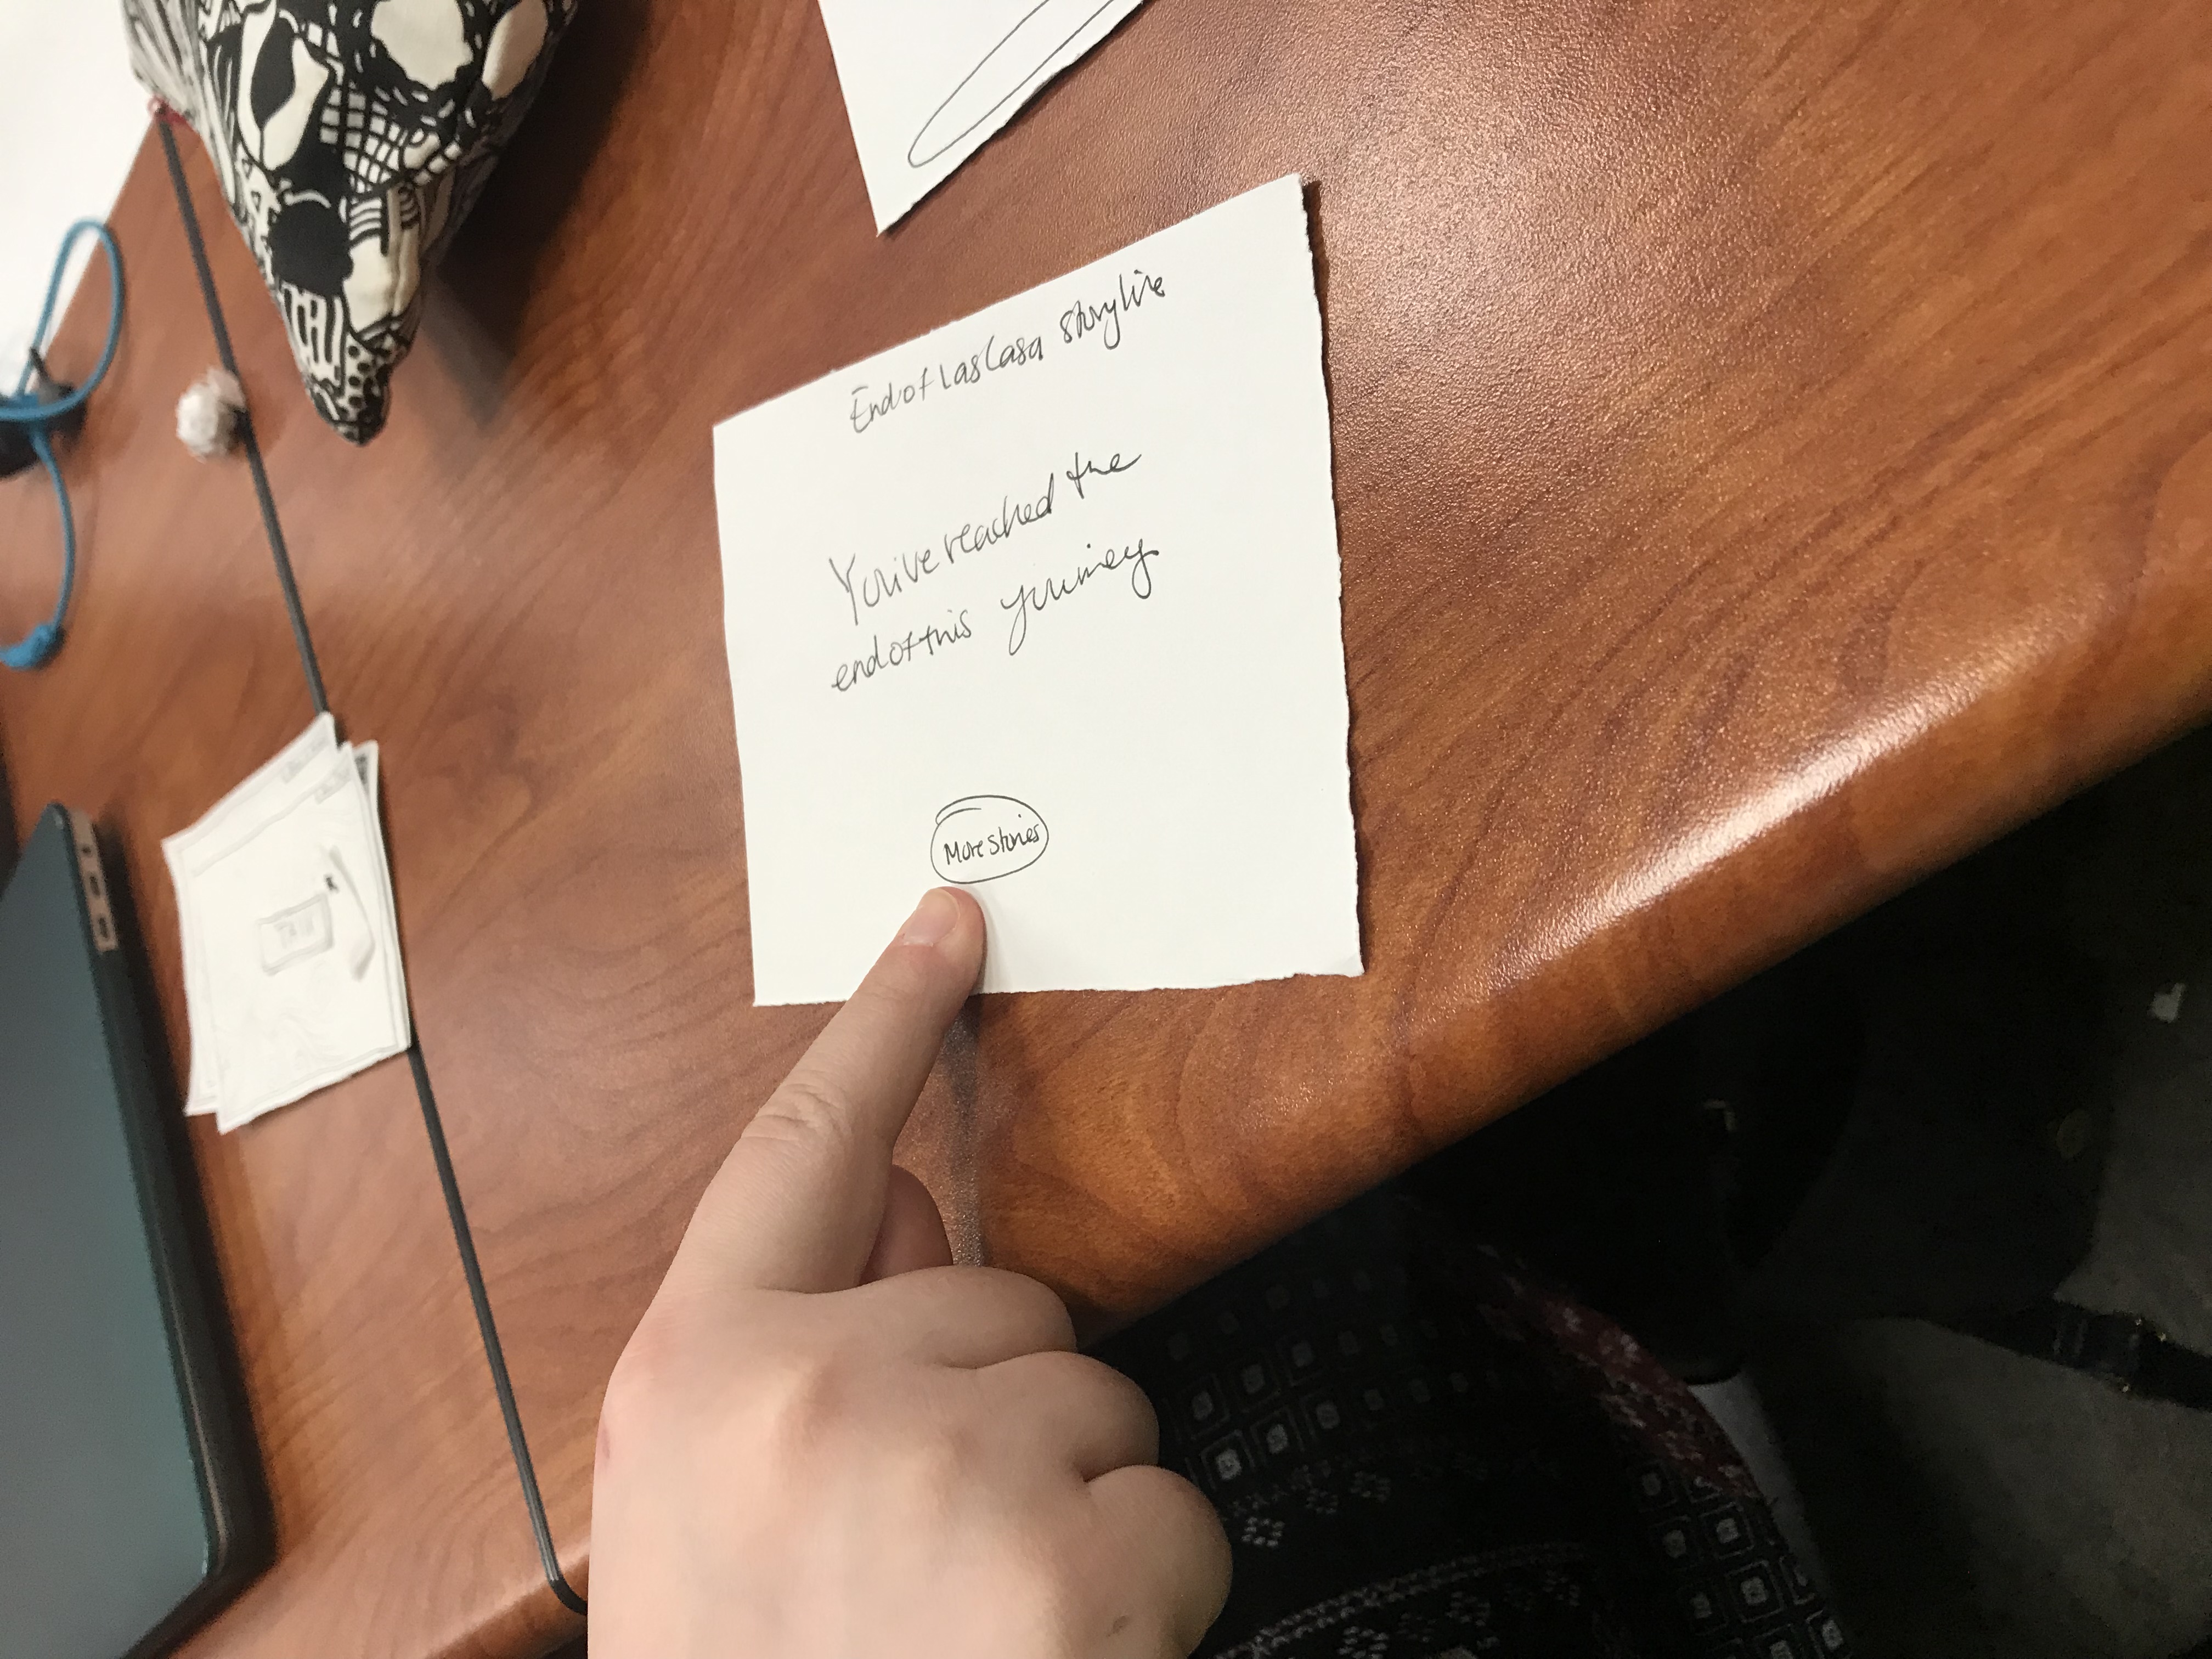 End of Las Casa storyline
You've reached the
end of this journey
More Stories